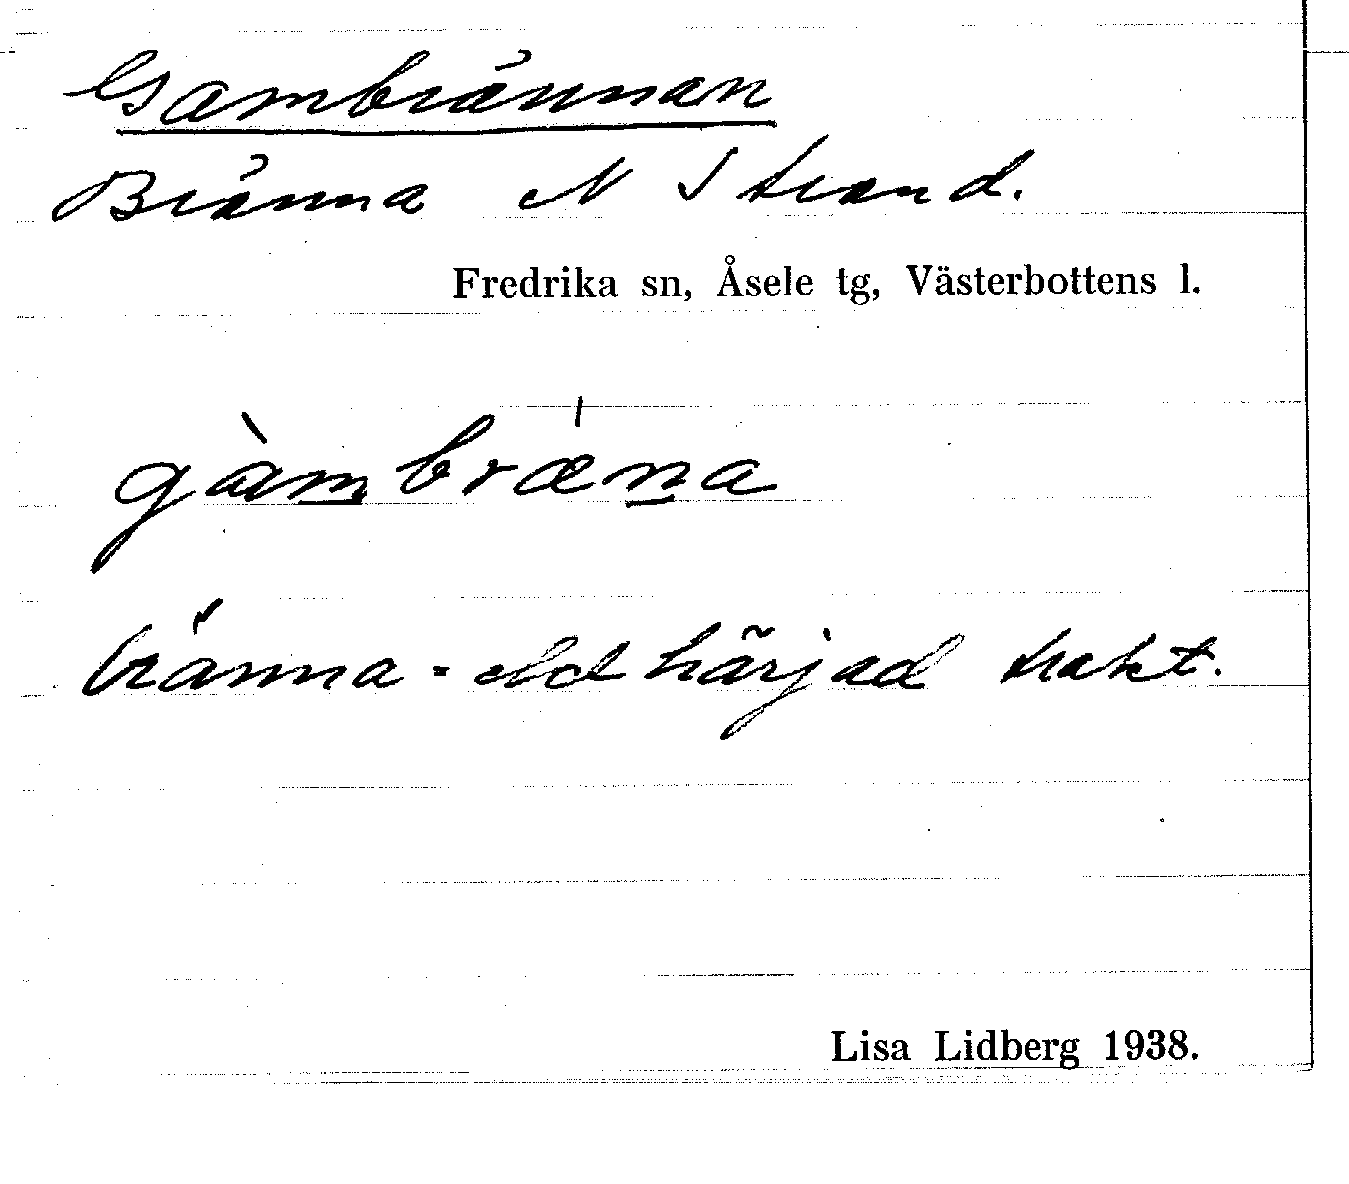 Gambrännan
Bränna N Strand.
Fredrika sn, Åsele tg, Västerbottens l.
gàm̲brǽn̲a
bränna = eldhärjad trakt.
Lisa Lidberg 1938.